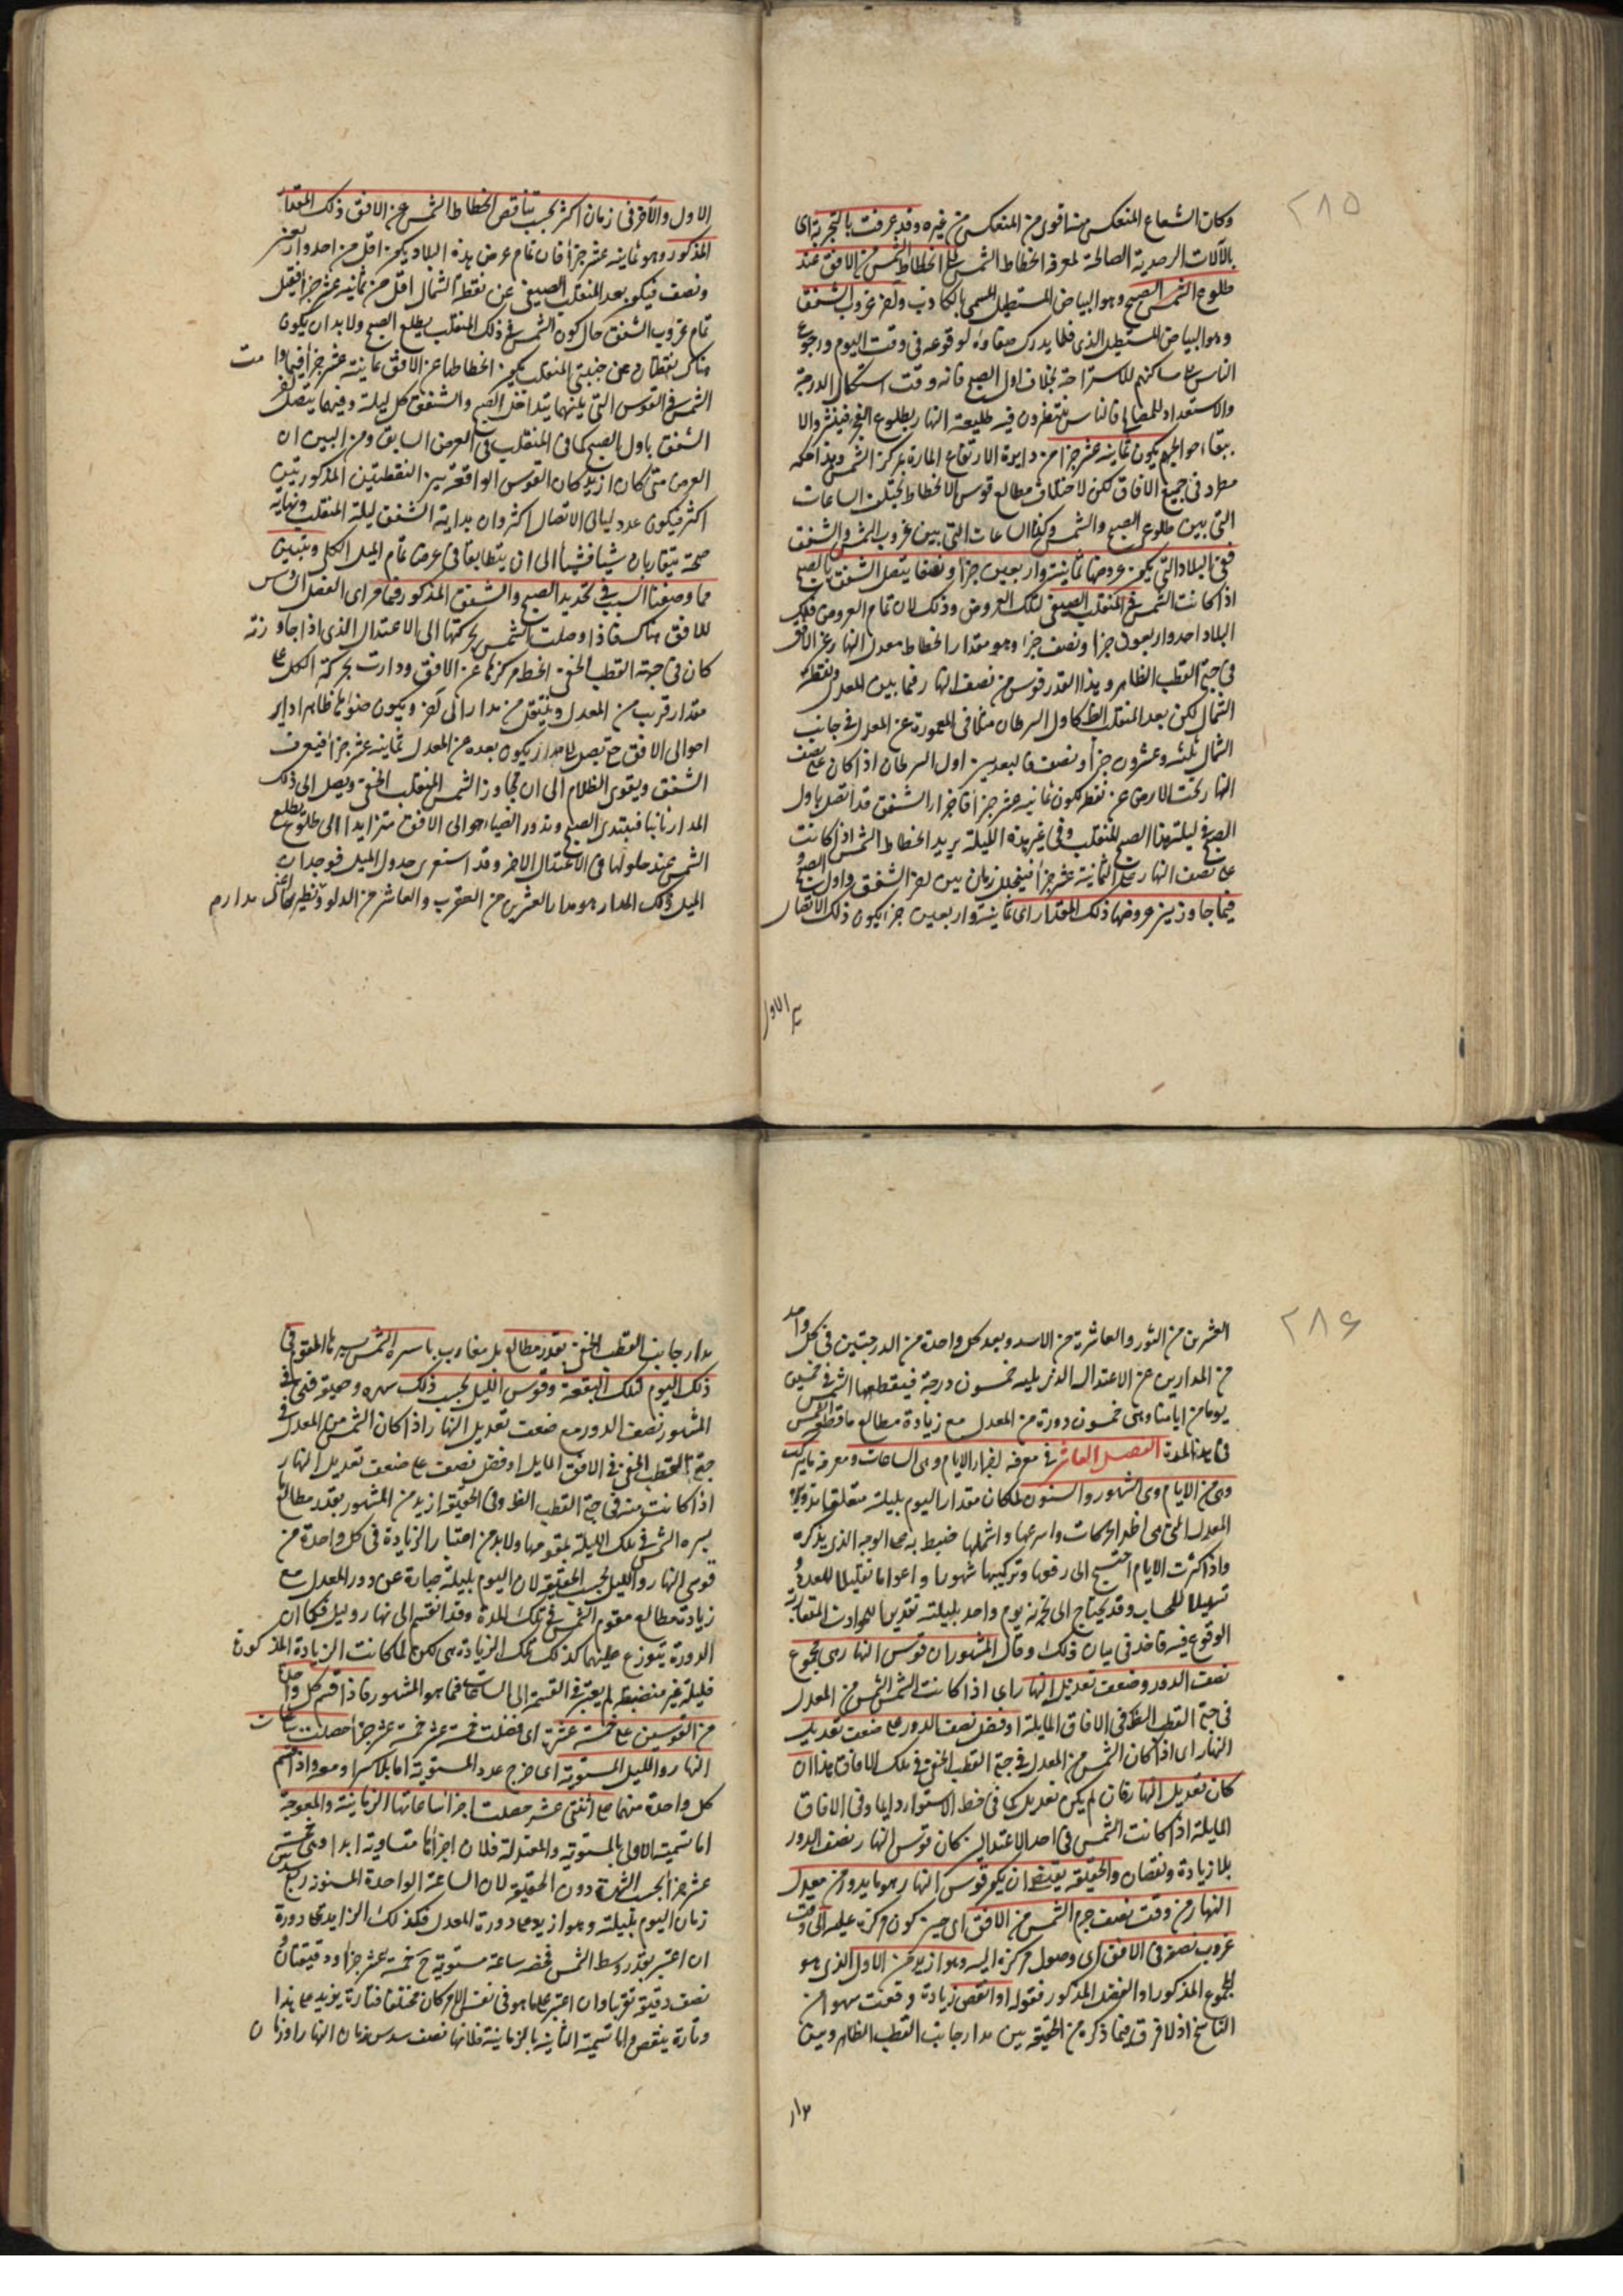 ٢٨٥
وكان الشعاع المنعكس منها اقوى من المنعكس من غيره وقد عرفت بالتجربة اى
بالآلات الرصدية الصالحة لمعرفة انحطاط الشمس ان انحطاط الشمس من الافق عند
طلوع الصبح وهو البياض المستطيل المسمى بالكاذب وآخر غروب الشفق
وهو البياض المستطيل الذى قلما يدرك لوقوعه فى وقت النوم ورجوع
الناس الى مساكنهم للاستراحة بخلاف اول الصبح فانه وقت استكمال
والاستعداد للمصالح فالناس ينتظرون فيه طليعة النهار بطلوع الفجر
يكون ثمانية عشر جزأ من دايرة الارتفاع المارة بمركز الشمس وهذا حكم
مطرد فى جميع الافاق لكن لاختلاف مطالع قوس الانحطاط تختلف الساعات
التى بين طلوع الصبح والشمس وكذا الساعات التى بين غروب الشمس والشفق
ففى البلاد التى يكون عرضها ثمانية واربعين جزأ ونصفا يتصل الشفق بالصبح
اذا كانت الشمس فى المنقلب الصيفى لتلك العروض وذلك لان تمام العروض فى تلك
البلاد احد واربعون جزأ ونصف جزأ وهو مقدار انحطاط معدل النهار عن الافق
فى جهة القطب الظاهر وهذا القدر قوس من نصف النهار فيما بين المعدل ونقطة
الشمال لكن بعد المنقلب الظ كاول السرطان مثلا فى المعمورة عن المعدل فى جانب
الشمال ثلثة وعشرون جزأ ونصف فالبعد بين اول السرطان اذا كان على نصف
النهار تحت الارض عن نقطة يكون ثمانية عشر جزأ فآخر الشفق قد اتصل باول
الصبح فى ليلة هذا المنقلب وفى غير هذه الليلة يزيد انحطاط الشمس اذا كانت
على نصف النهار على الثمانية عشر جزأ فيتخلل زمان بين آخر الشفق واول الصبح
فيما جاوز عروضها ذلك المقدار اى ثمانية واربعين جزأ يكون ذلك الاتصال
الاول
الاول والآخر فى زمان اكثر بحسب تناقص انحطاط الشمس عن الافق ذلك المقدار
المذكور وهو ثمانية عشر جزأ فان تمام عرض هذه البلاد يكون اقل من احد واربعين
ونصف فيكون بعد المنقلب الصيفى عن نقطة الشمال اقل من ثمانية عشر جزأ فقبل
تمام غروب الشفق حال كون الشمس فى ذلك المنقلب يطلع الصبح ولا بد ان يكون
هناك نقطتان عن جنبتى المنقلب يكون انحطاطها عن الافق ثمانية عشر جزأ فما دامت
الشمس فى القوس التى بينهما يتداخل الصبح والشفق كل ليلة وفيهما يتصل آخر
الشفق باول الصبح كما فى المنقلب فى العرض السابق ومن البين ان
العرض متى كان ازيد كان القوس الواقعة بين النقطتين المذكورتين
اكثر فيكون عدد ليالى الاتصال اكثر وان بداية الشفق ليلة المنقلب ونهاية
صبحه يتقاربان شيئا فشيئا الى ان يتطابقا فى عرض تمام الميل الكلى ويتبين
مما وصفنا السبب فى تحديد الصبح والشفق المذكور فيما مر اى الفصل السادس
للافق هناك فاذا وصلت الشمس بحركتها الى الاعتدال الذى اذا جاوزته
كان فى جهة القطب الخفى انحط مركزها عن الافق ودارت بحركة الكل على
مقدار قريب من المعدل وينتقل من مدار الى آخر ويكون ضوئها ظاهرا داير
احوالى الافق حتى يصل الى مدار يكون بعده عن المعدل ثمانية عشر جزأ فيغرب
الشفق ويقوى الظلام الى ان يجاوز الشمس المنقلب الخفى ويصل الى ذلك
المدار ثانيا فيبتدى الصبح ويدور الضياء حوالى الافق متزايدا الى طلوع
الشمس عند حلولها فى الاعتدال الآخر وقد استقرى جدول الميل فوجد ان
الميل ذلك المدار هو مدار العشرين من العقرب والعاشر من الدلو ونظير ذلك مدار
٢٨٦
العشرين من الثور والعاشرة من الاسد وبعد كل واحدة من الدرجتين فى كل واحد
من المدارين عن الاعتدال الذى يليه خمسون درجة فيقطعها الشمس فى خمسين
يوما من ايامنا وهى خمسون دورة من المعدل مع زيادة مطالع ما قطعته الشمس
فى هذه المدة الفصل العاشر فى معرفة اجزاء الايام وهى الساعات ومعرفة ما يتركب
من الايام وهى الشهور والسنون لما كان مقدار اليوم بليلته متعلقا بدورة
المعدل التى هى اظهر الحركات واسرعها واشملها ضبط به على الوجه الذى يذكره
واذا كثرت الايام احتيج الى رفعها وتركيبها شهورا واعواما تقليلا للعدد و
تسهيلا للحساب وقد يحتاج الى تجزئة يوم واحد بليلته تقديرا للحوادث المتقاربة
الوقوع فيه فاخذ فى بيان ذلك وقال المشهور ان قوس النهار هى مجموع
نصف الدور وضعف تعديل النهار اى اذا كانت الشمس من المعدل
فى جهة القطب الظ فى الافاق المايلة او فضل نصف الدور على ضعف تعديل
النهار اى اذا كان الشمس من المعدل فى جهة القطب الخفى فى تلك الافاق هذا ان
كان تعديل النهار فان لم يكن تعديل كما فى خط الاستواء دايما وفى الافاق
المايلة اذا كانت الشمس فى احد الاعتدالين كان قوس النهار نصف الدور
بلا زيادة ونقصان والحقيقة يقتضى ان يكون قوس النهار هو ما يدور من معدل
النهار من وقت نصف جرم الشمس من الافق اى حين كون مركزه عليه الى وقت
غروب نصفه فى الافق اى وصول مركزه اليه وهو ازيد من الاول الذى هو
المجموع المذكور او الفضل المذكور فقوله او انقص زيادة وقعت سهوا من
الناسخ اذ لا فرق فيما ذكره من الحقيقة بين مدار جانب القطب الظاهر وبين
مدار
مدار جانب القطب الخفى بقدر مطالع بل مغارب ما سيره الشمس بسيرها المقوم فى
ذلك اليوم لتلك البقعة وقوس الليل بحسب ذلك مشهورة وحقيقية فهى فى
المشهور نصف الدور مع ضعف تعديل النهار اذا كان الشمس من المعدل فى
جهة القطب الخفى فى الافق المايل او فضل نصف على ضعف تعديل النهار
اذا كانت منه فى جهة القطب الظ وفى الحقيقة ازيد من المشهور بقدر مطالع ما
يسيره الشمس فى تلك الليلة بمقومها ولا بد من اعتبار الزيادة فى كل واحدة من
قوسى النهار والليل بحسب الحقيقة لان اليوم بليلته عبارة عن دور المعدل مع
زيادة مطالع مقوم الشمس فى تلك المدة وقد انقسم الى نهار وليل فكما ان
الدورة يتوزع عليهما كذلك تلك الزيادة لكن لما كانت الزيادة المذكورة
قليلة غير منضبطة لم يعتبر فى القسمة الى الساعات فما هو المشهور فاذا قسم كل واحد
من القوسين على خمسة عشر اى فضلت خمسة عشر خمسة عشر جزأ حصلت ساعات
النهار والليل المستوية اى خرج عدد المستوية اما بلا كسر او معه واذا قسم
كل واحدة منهما على اثنتى عشر حصلت اجزاء ساعاتها الزمانية والمعوجة
اما تسمية الاولى بالمستوية والمعتدلة فلان اجزائها متساوية ابدا وهى خمسة
عشر جزأ بحسب الشهرة دون الحقيقة لان الساعة الواحدة المستوية ربع سدس
زمان اليوم بليلته وهو ازيد من دورة المعدل فكذلك الزايد على دورة
ان اعتبر بقدر وسط الشمس فحصة ساعة مستوية ح خمسة عشر جزأ ودقيقتان و
نصف دقيقة تقريبا وان اعتبر على ما هو فى نفس الامر كان مختلفا فتارة يزيد على هذا
وتارة ينقص واما تسمية الثانية بالزمانية فلانها نصف سدس زمان النهار او زمان